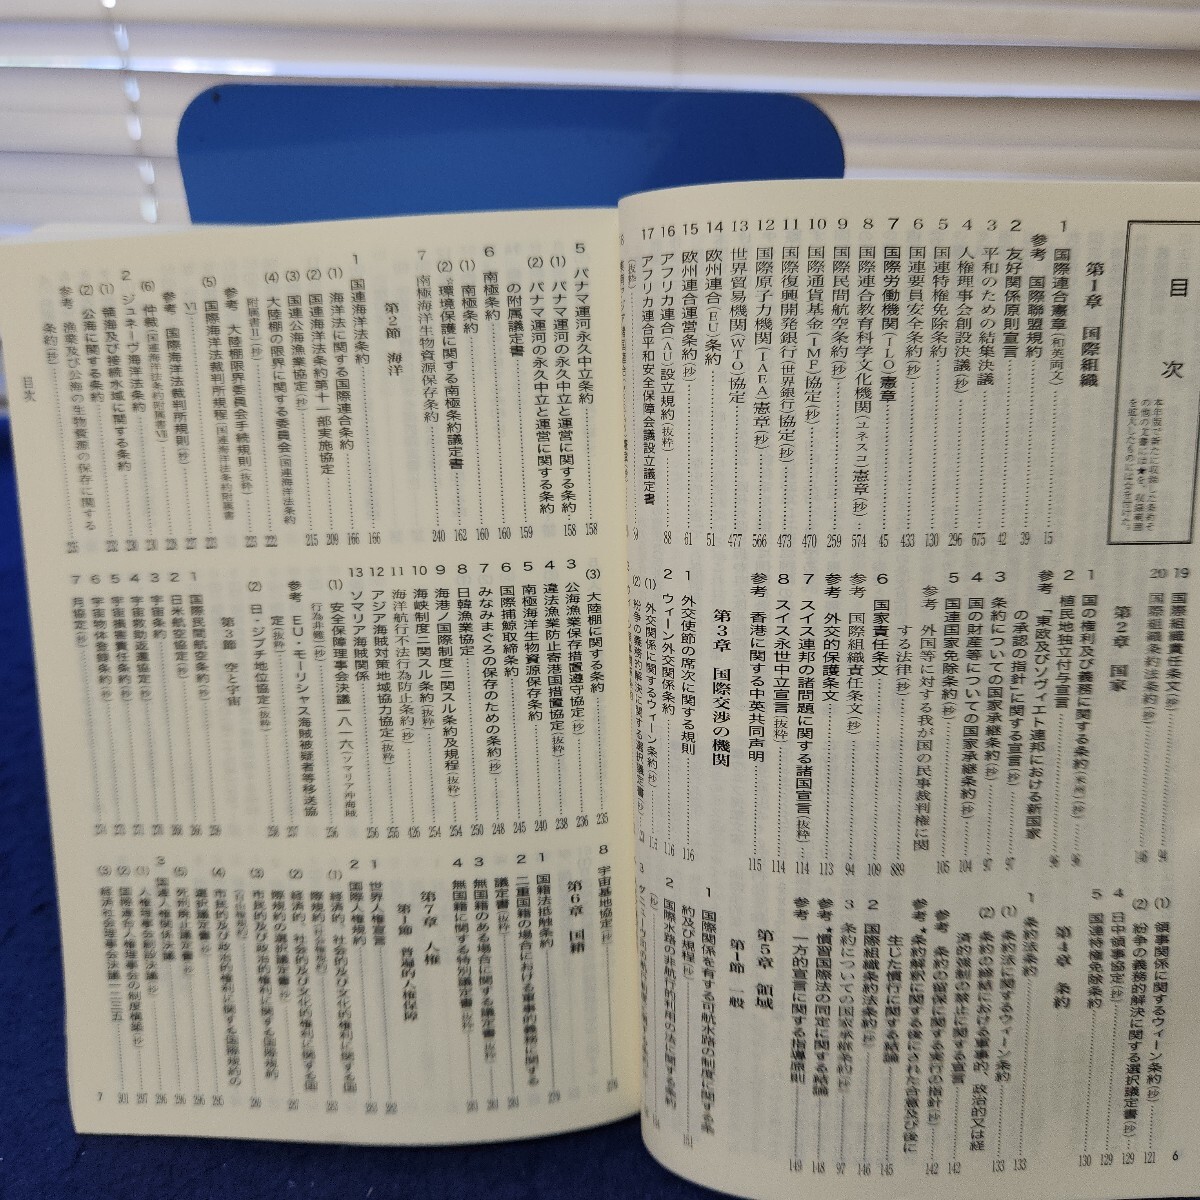 目 次
本年版で新たに収録した条約そ
の他の文書には★を、収録範囲
第1章 国際組織
1 国際連合憲章(和英両文) 15
参考 国際聯盟規約 39
2 友好関係原則宣言 42
3 平和のための結集決議 675
4 人権理事会創設決議(抄) 296
5 国連特権免除条約 130
6 国連要員安全条約(抄) 433
7 国際労働機関(ILO)憲章 45
8 国際連合教育科学文化機関(ユネスコ)憲章(抄) 574
9 国際民間航空条約(抄) 259
10 国際通貨基金(IMF)協定(抄) 470
11 国際復興開発銀行(世界銀行)協定(抄) 473
12 国際原子力機関(IAEA)憲章(抄) 566
13 世界貿易機関(WTO)協定 477
14 欧州連合(EU)条約 51
15 欧州連合運営条約(抄) 61
16 アフリカ連合(AU)設立規約(抜粋) 88
17 アフリカ連合平和安全保障会議設立議定書
(抜粋)
19 国際組織責任条文(抄) 94
20 国際組織条約法条約(抄) 146
第2章 国家
1 国の権利及び義務に関する条約(米州)(抄) 96
2 植民地独立付与宣言 96
参考 「東欧及びソヴィエト連邦における新国家
の承認の指針」に関する宣言(抄) 97
3 条約についての国家承継条約(抄) 97
4 国の財産等についての国家承継条約(抄) 104
5 国連国家免除条約(抄) 105
参考 外国等に対する我が国の民事裁判権に関
する法律(抄) 889
6 国家責任条文 109
参考 国際組織責任条文(抄) 94
参考 外交的保護条文 113
7 スイス連邦の諸問題に関する諸国宣言(抜粋) 114
8 スイス永世中立宣言(抜粋) 114
参考 香港に関する中英共同声明 115
第3章 国際交渉の機関
1 外交使節の席次に関する規則 116
2 ウィーン外交関係条約
(1) 外交関係に関するウィーン条約(抄) 116
(2) 紛争の義務的解決に関する選択議定書(抄)
(1) 領事関係に関するウィーン条約(抄) 121
(2) 紛争の義務的解決に関する選択議定書(抄) 129
4 日中領事協定(抄) 129
5 国連特権免除条約 130
第4章 条約
1 条約法条約
(1) 条約法に関するウィーン条約 133
(2) 条約の締結における軍事的、政治的又は経
済的強制の禁止に関する宣言 142
参考 条約の留保に関する実行の指針(抄) 142
参考★条約解釈に関する後にされた合意及び後に
生じた慣行に関する結論 145
2 国際組織条約法条約(抄) 146
3 条約についての国家承継条約(抄) 97
参考★慣習国際法の同定に関する結論 148
参考 一方的宣言に関する指導原則 149
第5章 領域
第1節 一般
1 国際関係を有する可航水路の制度に関する条
約及び規程(抄) 151
2 国際水路の非航行的利用の法に関する条約
(抄)
6
5 パナマ運河永久中立条約
(1) パナマ運河の永久中立と運営に関する条約 158
(2) パナマ運河の永久中立と運営に関する条約
の附属議定書 159
6 南極条約 160
(1) 南極条約 160
(2) 環境保護に関する南極条約議定書 162
7 南極海洋生物資源保存条約 240
第2節 海洋
1 国連海洋法条約 166
(1) 海洋法に関する国際連合条約 166
(2) 国連海洋法条約第十一部実施協定 209
(3) 国連公海漁業協定(抄) 215
(4) 大陸棚の限界に関する委員会(国連海洋法条約
附属書II)(抄) 222
参考 大陸棚限界委員会手続規則(抜粋) 223
(5) 国際海洋法裁判所規程(国連海洋法条約附属書
VI)
参考 国際海洋法裁判所規則(抄)
(6) 仲裁(国連海洋法条約附属書VII)
2 ジュネーヴ海洋法条約
(1) 領海及び接続水域に関する条約
(2) 公海に関する条約
参考 漁業及び公海の生物資源の保存に関する
条約(抄)
目次
(3) 大陸棚に関する条約 235
3 公海漁業保存措置遵守協定(抄) 236
4 違法漁業防止寄港国措置協定(抜粋) 238
5 南極海洋生物資源保存条約 240
6 国際捕鯨取締条約 245
7 みなみまぐろの保存のための条約(抄) 248
8 日韓漁業協定 250
9 海港ノ国際制度ニ関スル条約及規程(抜粋) 254
10 海峡制度ニ関スル条約(抜粋) 254
11 海洋航行不法行為防止条約(抄) 426
12 アジア海賊対策地域協力協定(抜粋) 255
13 ソマリア海賊関係 256
(1) 安全保障理事会決議一八一六(ソマリア沖海賊
行為非難)(抄) 256
参考 EU・モーリシャス海賊被疑者等移送協
定(抜粋) 257
(2) 日・ジブチ地位協定(抜粋) 258
第3節 空と宇宙
1 国際民間航空条約(抄) 259
2 日米航空協定(抄)
3 宇宙条約
4 宇宙救助返還協定(抄)
5 宇宙損害責任条約(抄)
6 宇宙物体登録条約(抄)
7 月協定(抄)
8 宇宙基地協定(抄)
第6章 国籍
1 国籍法抵触条約 279
2 二重国籍の場合における軍事的義務に関する
議定書(抜粋)
3 無国籍のある場合に関する議定書(抜粋)
4 無国籍に関する特別議定書(抜粋)
第7章 人権
第1節 普遍的人権保障
1 世界人権宣言
2 国際人権規約
(1) 経済的、社会的及び文化的権利に関する国
際規約(社会権規約)
(2) 経済的、社会的及び文化的権利に関する国
際規約の選択議定書(抄)
(3) 市民的及び政治的権利に関する国際規約
(自由権規約)
(4) 市民的及び政治的権利に関する国際規約の
選択議定書(抄)
(5) 死刑廃止議定書(抄)
3 国連人権関係決議
(1) 人権理事会創設決議(抄)
(2) 国際連合人権理事会の制度構築(抄)
(3) 経済社会理事会決議一二三五
7